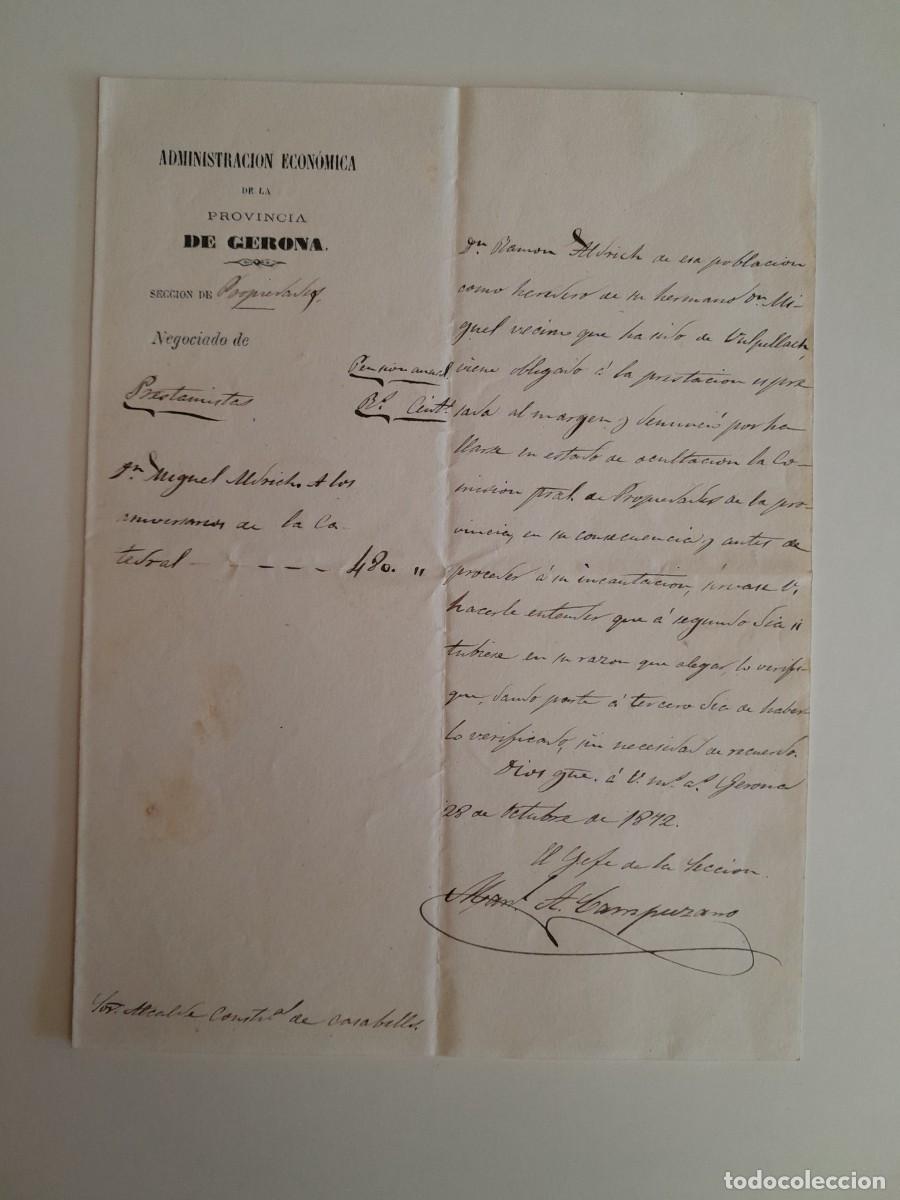 ADMINISTRACION ECONÓMICA
DE LA
PROVINCIA
DE GERONA.
SECCION DE Propiedades
Negociado de
Pension anual
Prestamistas Rs. Cents.
Dn. Miguel Aldrich A los
aniversarios de la Ca-
tedral - - - - - 480. "
Dn. Ramon Aldrich de esa poblacion
como heredero de su hermano Dn. Mi-
guel vecino que ha sido de Vulpellach,
viene obligado á la prestacion espre
sada al margen y denunció por ha
llarse en estado de ocultacion la Co-
mision pral. de Propiedades de la pro-
vincia, en su consecuencia y antes de
proceder á su incautacion, sirvase V.
hacerle entender que á segundo dia si
tubiese en su razon que alegar, lo verifi-
que, dando parte á tercero dia de haber
lo verificado, sin necesidad de recuerdo.
Dios gue. á V. ms. as. Gerona
28 de Octubre de 1872.
El Gefe de la Seccion.
Manl. A. Campuzano
Sor. Alcalde Constal. de Casabells.
todocoleccion